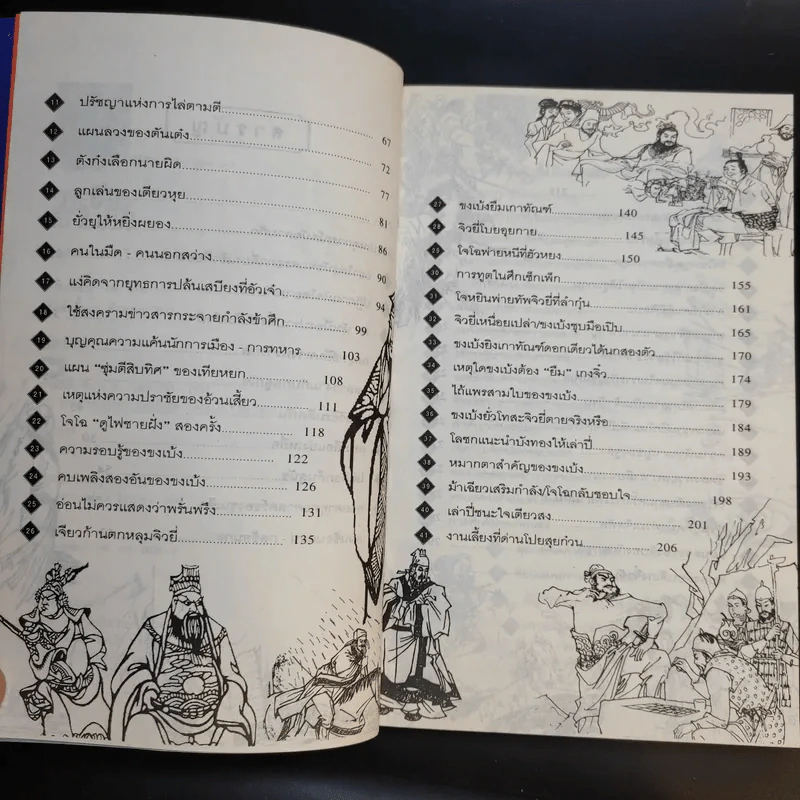 11 ปรัชญาแห่งการไล่ตามตี 67
12 แผนลวงของตันเต๋ง 72
13 ตังก๋งเลือกนายผิด 77
14 ลูกเล่นของเตียวหุย 81
15 ยั่วยุให้หยิ่งผยอง 86
16 คนในมืด - คนนอกสว่าง 90
17 แง่คิดจากยุทธการปล้นเสบียงที่อัวเจ๋า 94
18 ใช้สงครามข่าวสารกระจายกำลังข้าศึก 99
19 บุญคุณความแค้นนักการเมือง - การทหาร 103
20 แผน "ซุ่มตีสิบทิศ" ของเทียหยก 108
21 เหตุแห่งความปราชัยของอ้วนเสี้ยว 111
22 โจโฉ "ดูไฟชายฝั่ง" สองครั้ง 118
23 ความรอบรู้ของขงเบ้ง 122
24 คบเพลิงสองอันของขงเบ้ง 126
25 อ่อนไม่ควรแสดงว่าพรั่นพรึง 131
26 เจียวก้านตกหลุมจิวยี่ 135
27 ขงเบ้งยืมเกาทัณฑ์ 140
28 จิวยี่โบยอุยกาย 145
29 โจโฉพ่ายหนีที่ฮัวหยง 150
30 การทูตในศึกเซ็กเพ็ก 155
31 โจหยินพ่ายทัพจิวยี่ที่ลำกุ๋น 161
32 จิวยี่เหนื่อยเปล่า/ขงเบ้งชุบมือเปิบ 165
33 ขงเบ้งยิงเกาทัณฑ์ดอกเดียวได้นกสองตัว 170
34 เหตุใดขงเบ้งต้อง "ยืม" เกงจิ๋ว 174
35 ไถ้แพรสามใบของขงเบ้ง 179
36 ขงเบ้งยั่วโทสะจิวยี่ตายจริงหรือ 184
37 โลซกแนะนำบังทองให้เล่าปี่ 189
38 หมากตาสำคัญของขงเบ้ง 193
39 ม้าเฉียวเสริมกำลัง/โจโฉกลับชอบใจ 198
40 เล่าปี่ชนะใจเตียวสง 201
41 งานเลี้ยงที่ด่านโปยสุยก๋วน 206